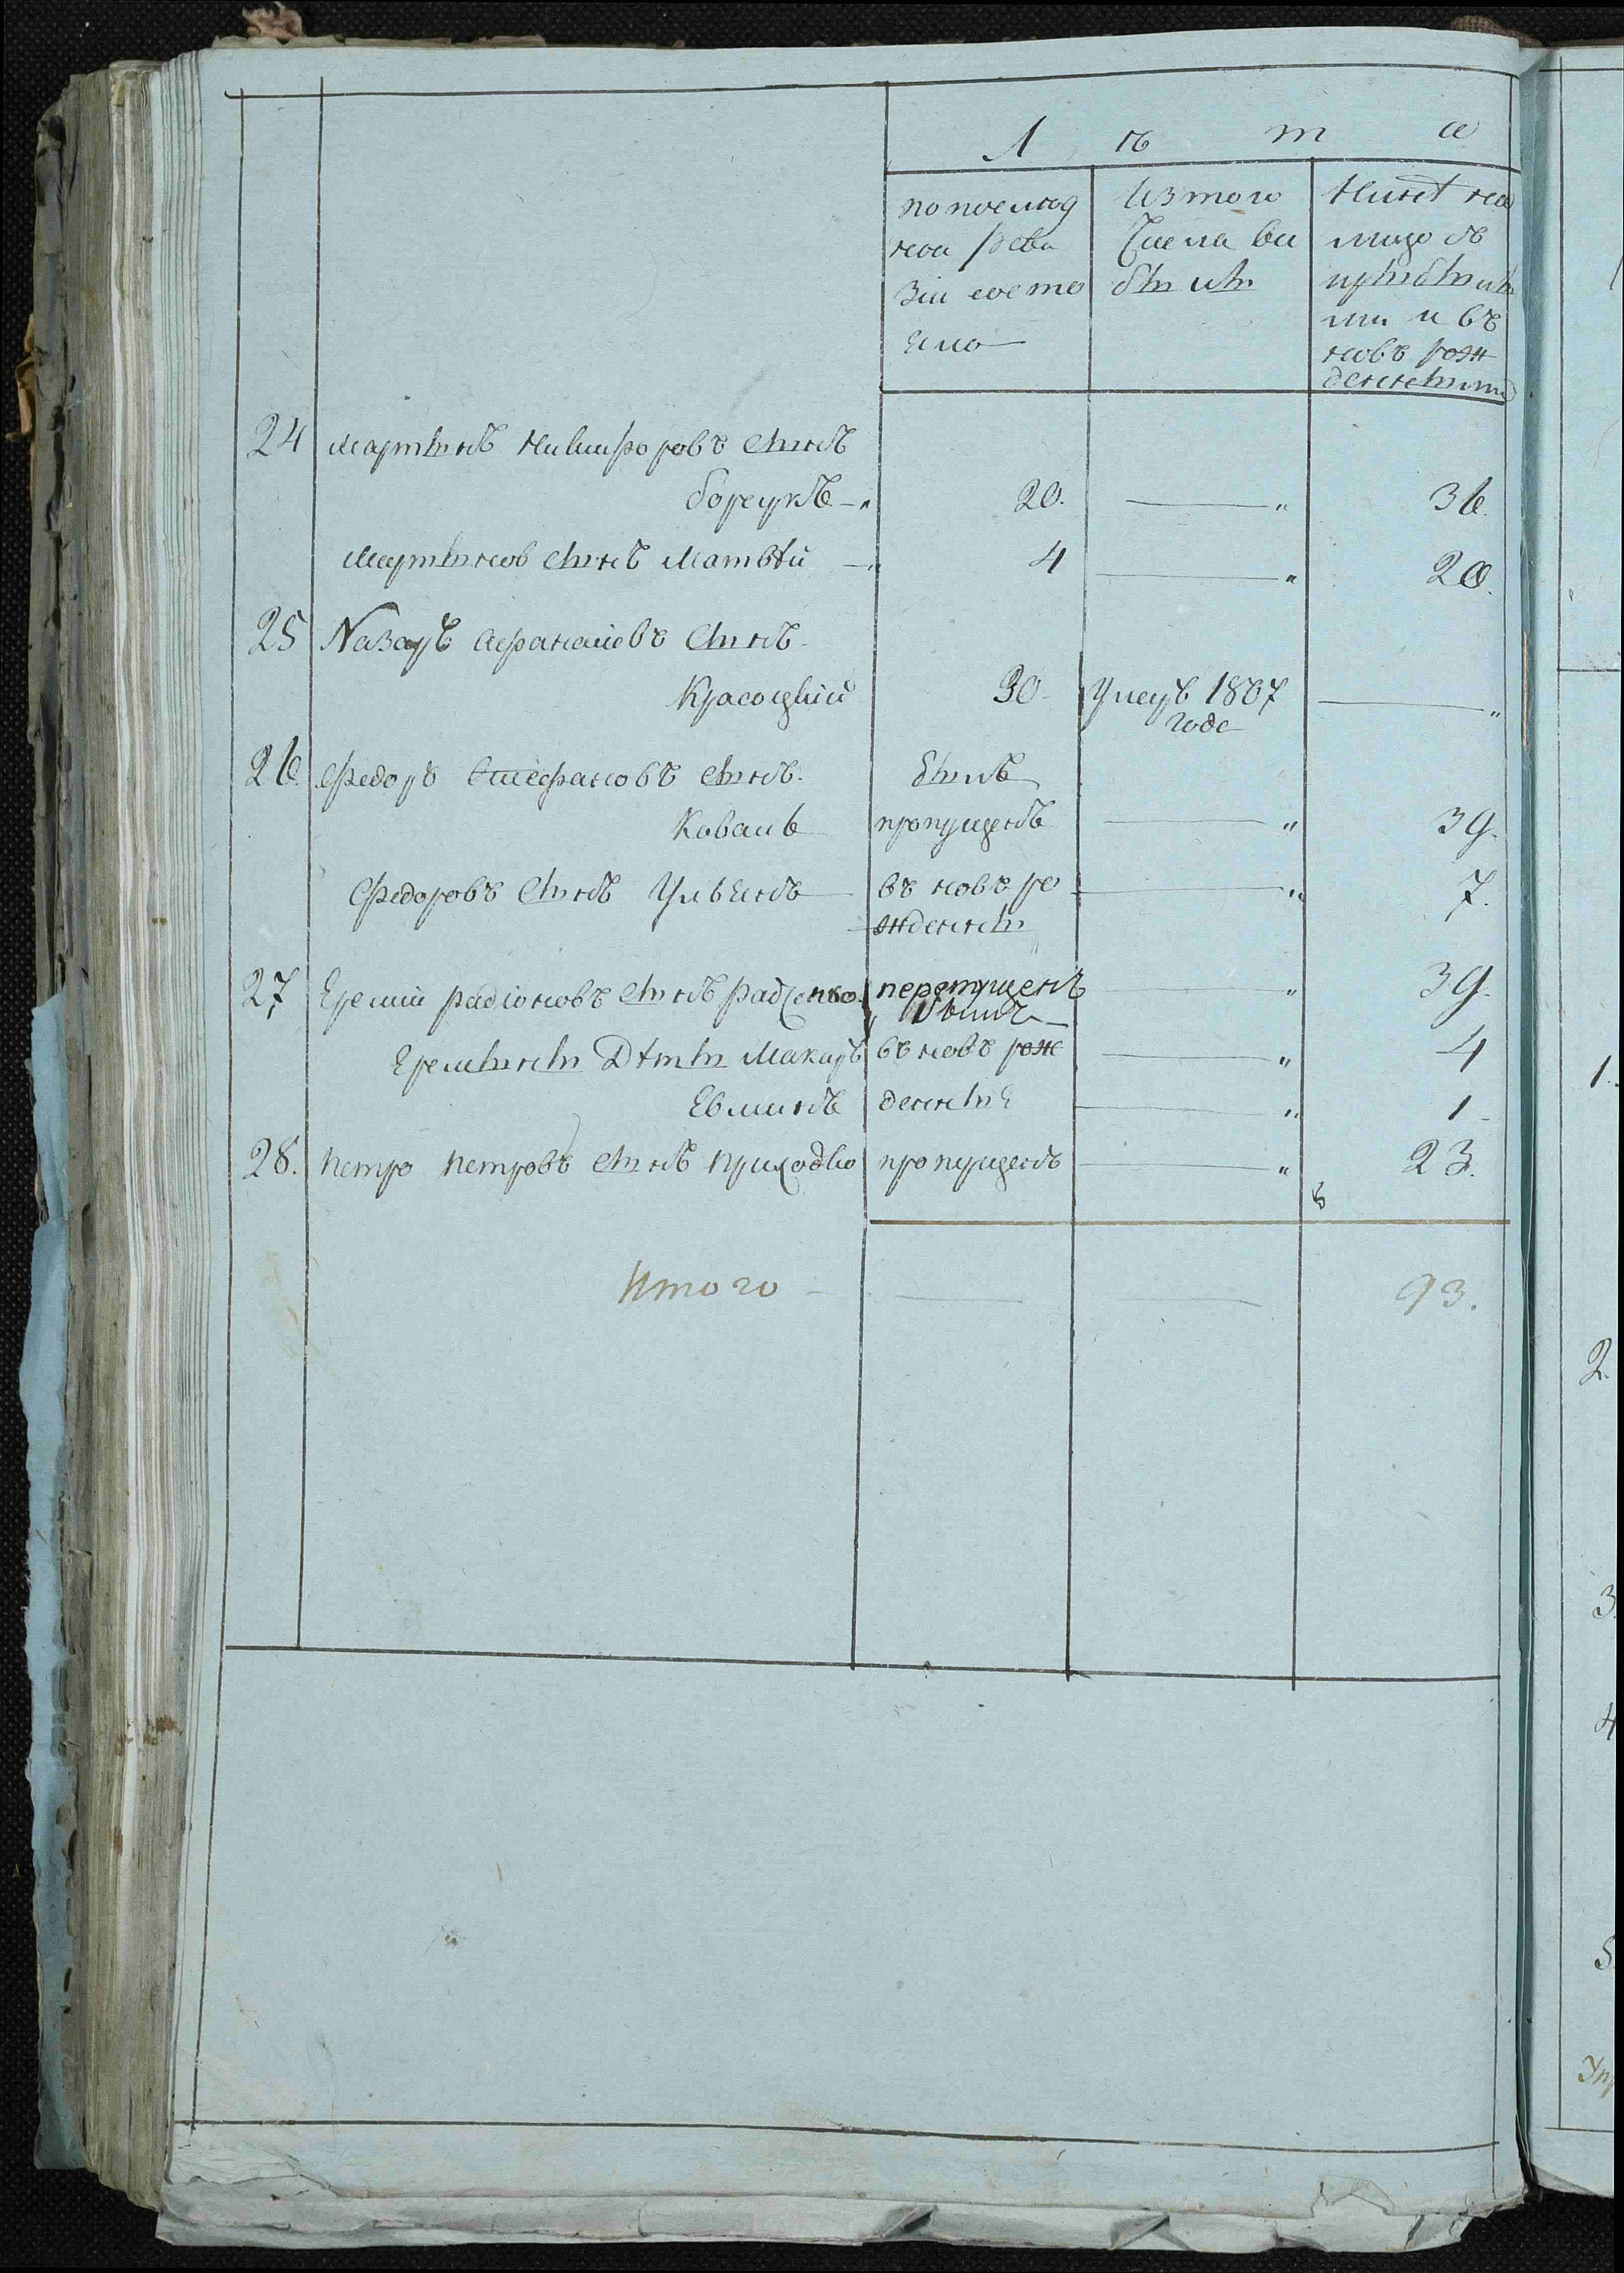 Л ѣ т а
по послѣд
ней реви
зіи состо
яло
Изъ того
числа вы
были
Нинѣ на
лицо съ
прыбылы
ми и въ
новъ рож
денными
24 Мартынъ Никифоровъ сынъ
борецкъ 20. 36.
Мартынов сынъ Матвѣй 4 20.
25 Назаръ Афанасіевъ сынъ
Красоцкій 30 умеръ 1807
годе
26. Федоръ Стефановъ сынъ былъ
Коваль пропущенъ 39.
Федоровъ сынъ Ульянъ въ новъ ро 7.
жденны
27 Еремій радіоновъ сынъ радченко 39.
Еремыны Дѣты Макаръ въ новъ рож 4
денныя 1
28. петро петровъ сынъ приходко пропущенъ 23.
Итого 93.
1.
2.
3
4
5